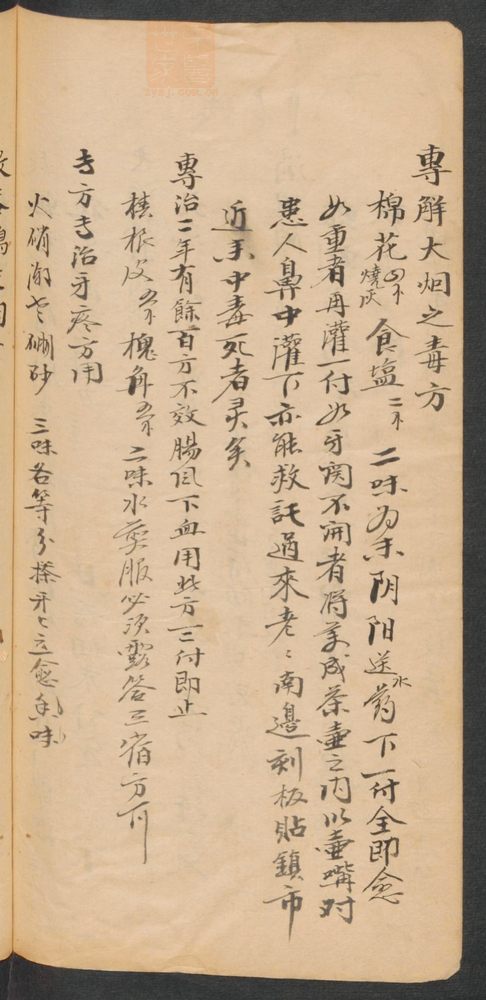 專解大烟之毒方
棉花 燒灰 食塩 二味为末阴阳水送药下一付全即愈
如重者再灌一付如牙関不開者将药成茶壺之内以壺嘴对
患人鼻中灌下亦能救託過來老〻南邊刻板貼鎮市
近来中毒死者灵矣
專治二年有餘百方不效腸風下血用此方三付即止
樁根皮 槐角 二味水煎服必須露答三宿方可
专方专治牙疼方用
火硝 硼砂 三味各等分搽牙上立愈